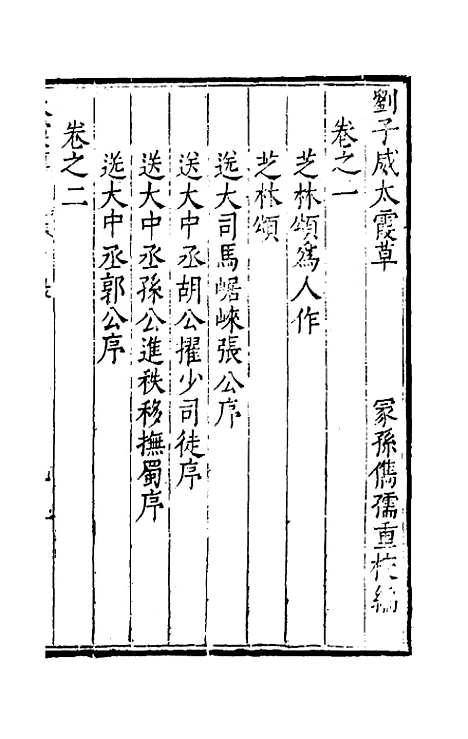 劉子威太霞草　　　冢孫儁孺重校編
卷之一
芝林頌爲人作
芝林頌
送大司馬崌崍張公序
送大中丞胡公擢少司徒序
送大中丞孫公進秩移撫蜀序
送大中丞郭公序
卷之二